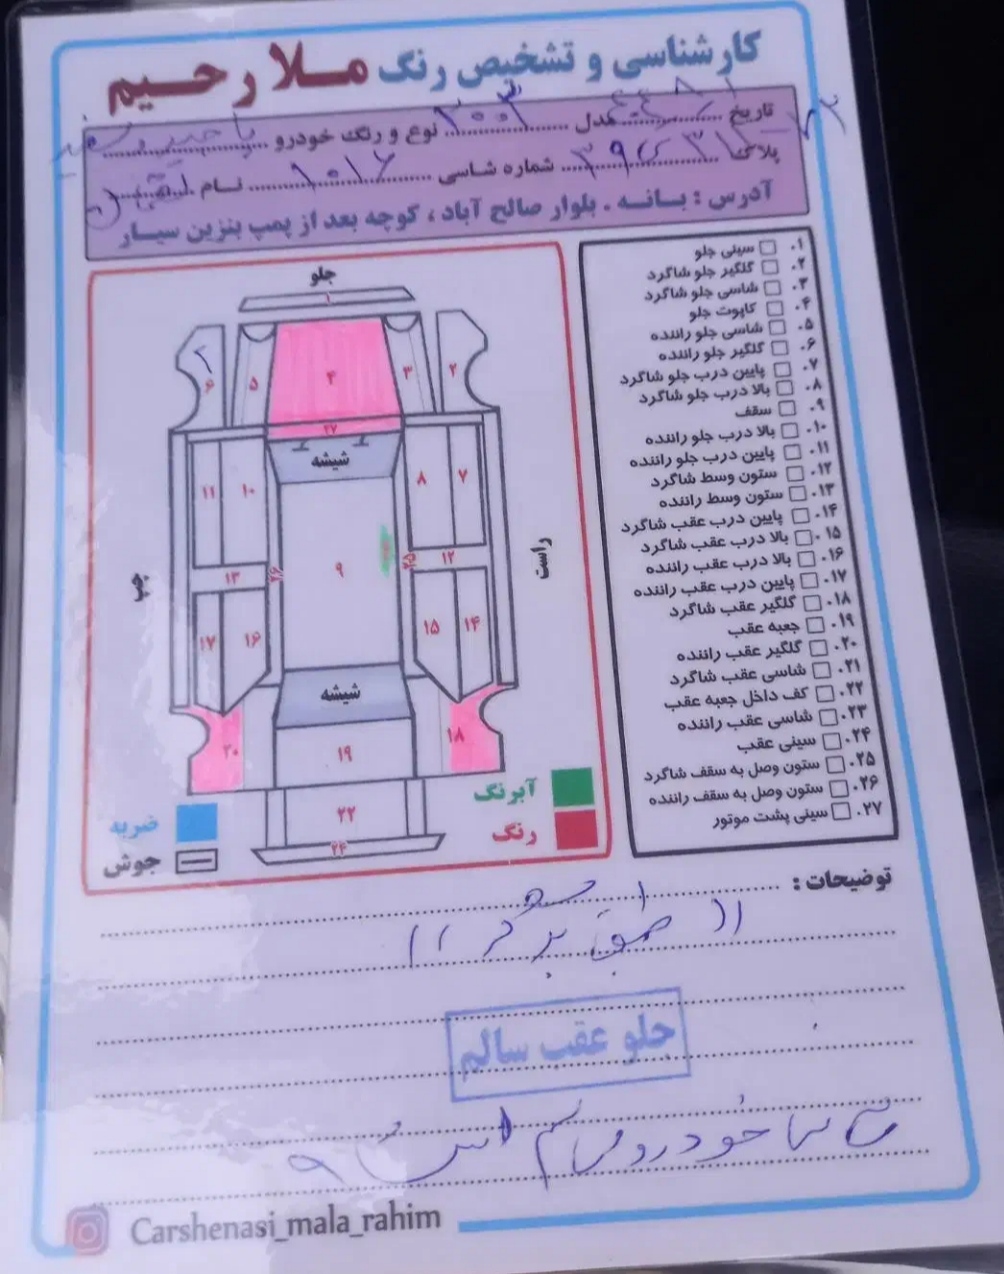 کارشناسی و تشخیص رنگ ملا رحیم
تاریخ مدل نوع و رنگ خودرو
پلاک شماره شاسی ۱۰۱۶ نام
آدرس : بانه . بلوار صالح آباد ، کوچه بعد از پمپ بنزین سیار
۱. سینی جلو
۲. گلگیر جلو شاگرد
۳. شاسی جلو شاگرد
۴. کاپوت جلو
۵. شاسی جلو راننده
۶. گلگیر جلو راننده
۷. پایین درب جلو شاگرد
۸. بالا درب جلو شاگرد
۹. سقف
۱۰. بالا درب جلو راننده
۱۱. پایین درب جلو راننده
۱۲. ستون وسط شاگرد
۱۳. ستون وسط راننده
۱۴. پایین درب عقب شاگرد
۱۵. بالا درب عقب شاگرد
۱۶. بالا درب عقب راننده
۱۷. پایین درب عقب راننده
۱۸. گلگیر عقب شاگرد
۱۹. جعبه عقب
۲۰. گلگیر عقب راننده
۲۱. شاسی عقب شاگرد
۲۲. کف داخل جعبه عقب
۲۳. شاسی عقب راننده
۲۴. سینی عقب
۲۵. ستون وصل به سقف شاگرد
۲۶. ستون وصل به سقف راننده
۲۷. سینی پشت موتور
جلو
۱
۲ ۳ ۴ ۵ ۶
۲۷
شیشه
۷ ۸ ۱۰ ۱۱
راست ۱۲ ۲۵ ۹ ۲۶ ۱۳ چپ
۱۴ ۱۵ ۱۶ ۱۷
شیشه
۱۸ ۱۹ ۲۰
آبرنگ
رنگ
۲۲
۲۴
ضربه
جوش
توضیحات :
جلو عقب سالم
Carshenasi_mala_rahim